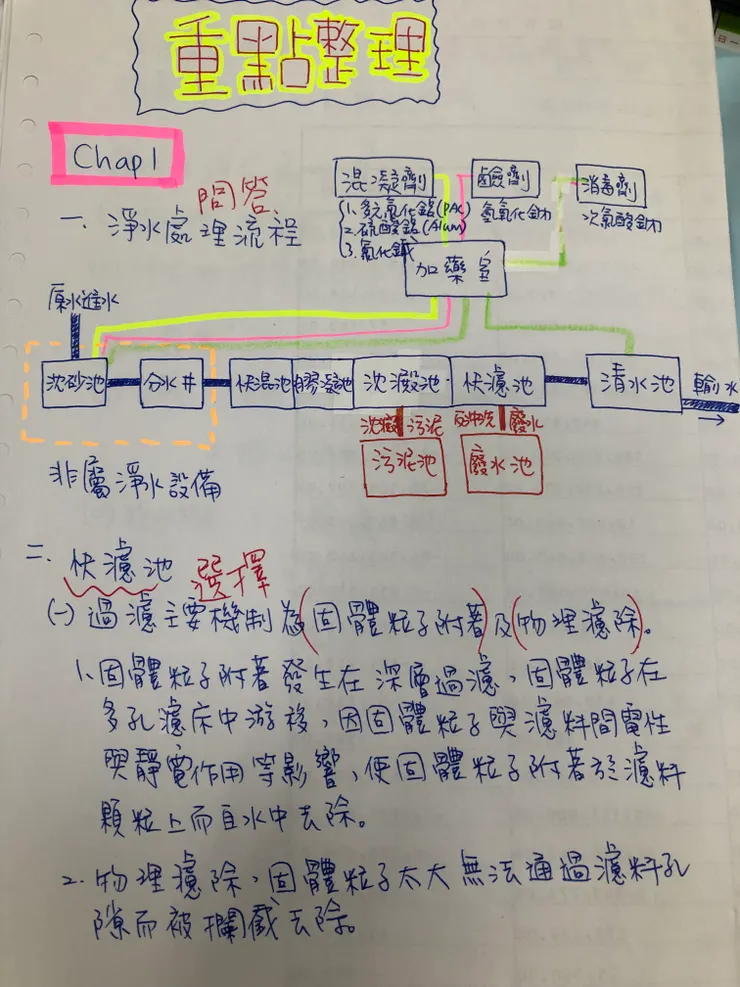 重點整理
Chap 1
問答
一、淨水處理流程
混凝劑
1. 多元氯化鋁(PAC)
2. 硫酸鋁(Alum)
3. 氯化鐵
鹼劑
氫氧化鈉
消毒劑
次氯酸鈉
加藥室
原水進水
沈砂池
分水井
快混池
膠凝池
沈澱池
快濾池
清水池
輸水
沈澱 污泥
反沖洗 廢水
污泥池
廢水池
非屬淨水設備
二、快濾池 選擇
(一)過濾主要機制為(固體粒子附著)及(物理濾除)。
1、固體粒子附著發生在深層過濾,固體粒子在
多孔濾床中游移,因固體粒子與濾料間電性
與靜電作用等影響,使固體粒子附著於濾料
顆粒上而自水中去除。
2、物理濾除,固體粒子太大無法通過濾料孔
隙而被攔截去除。